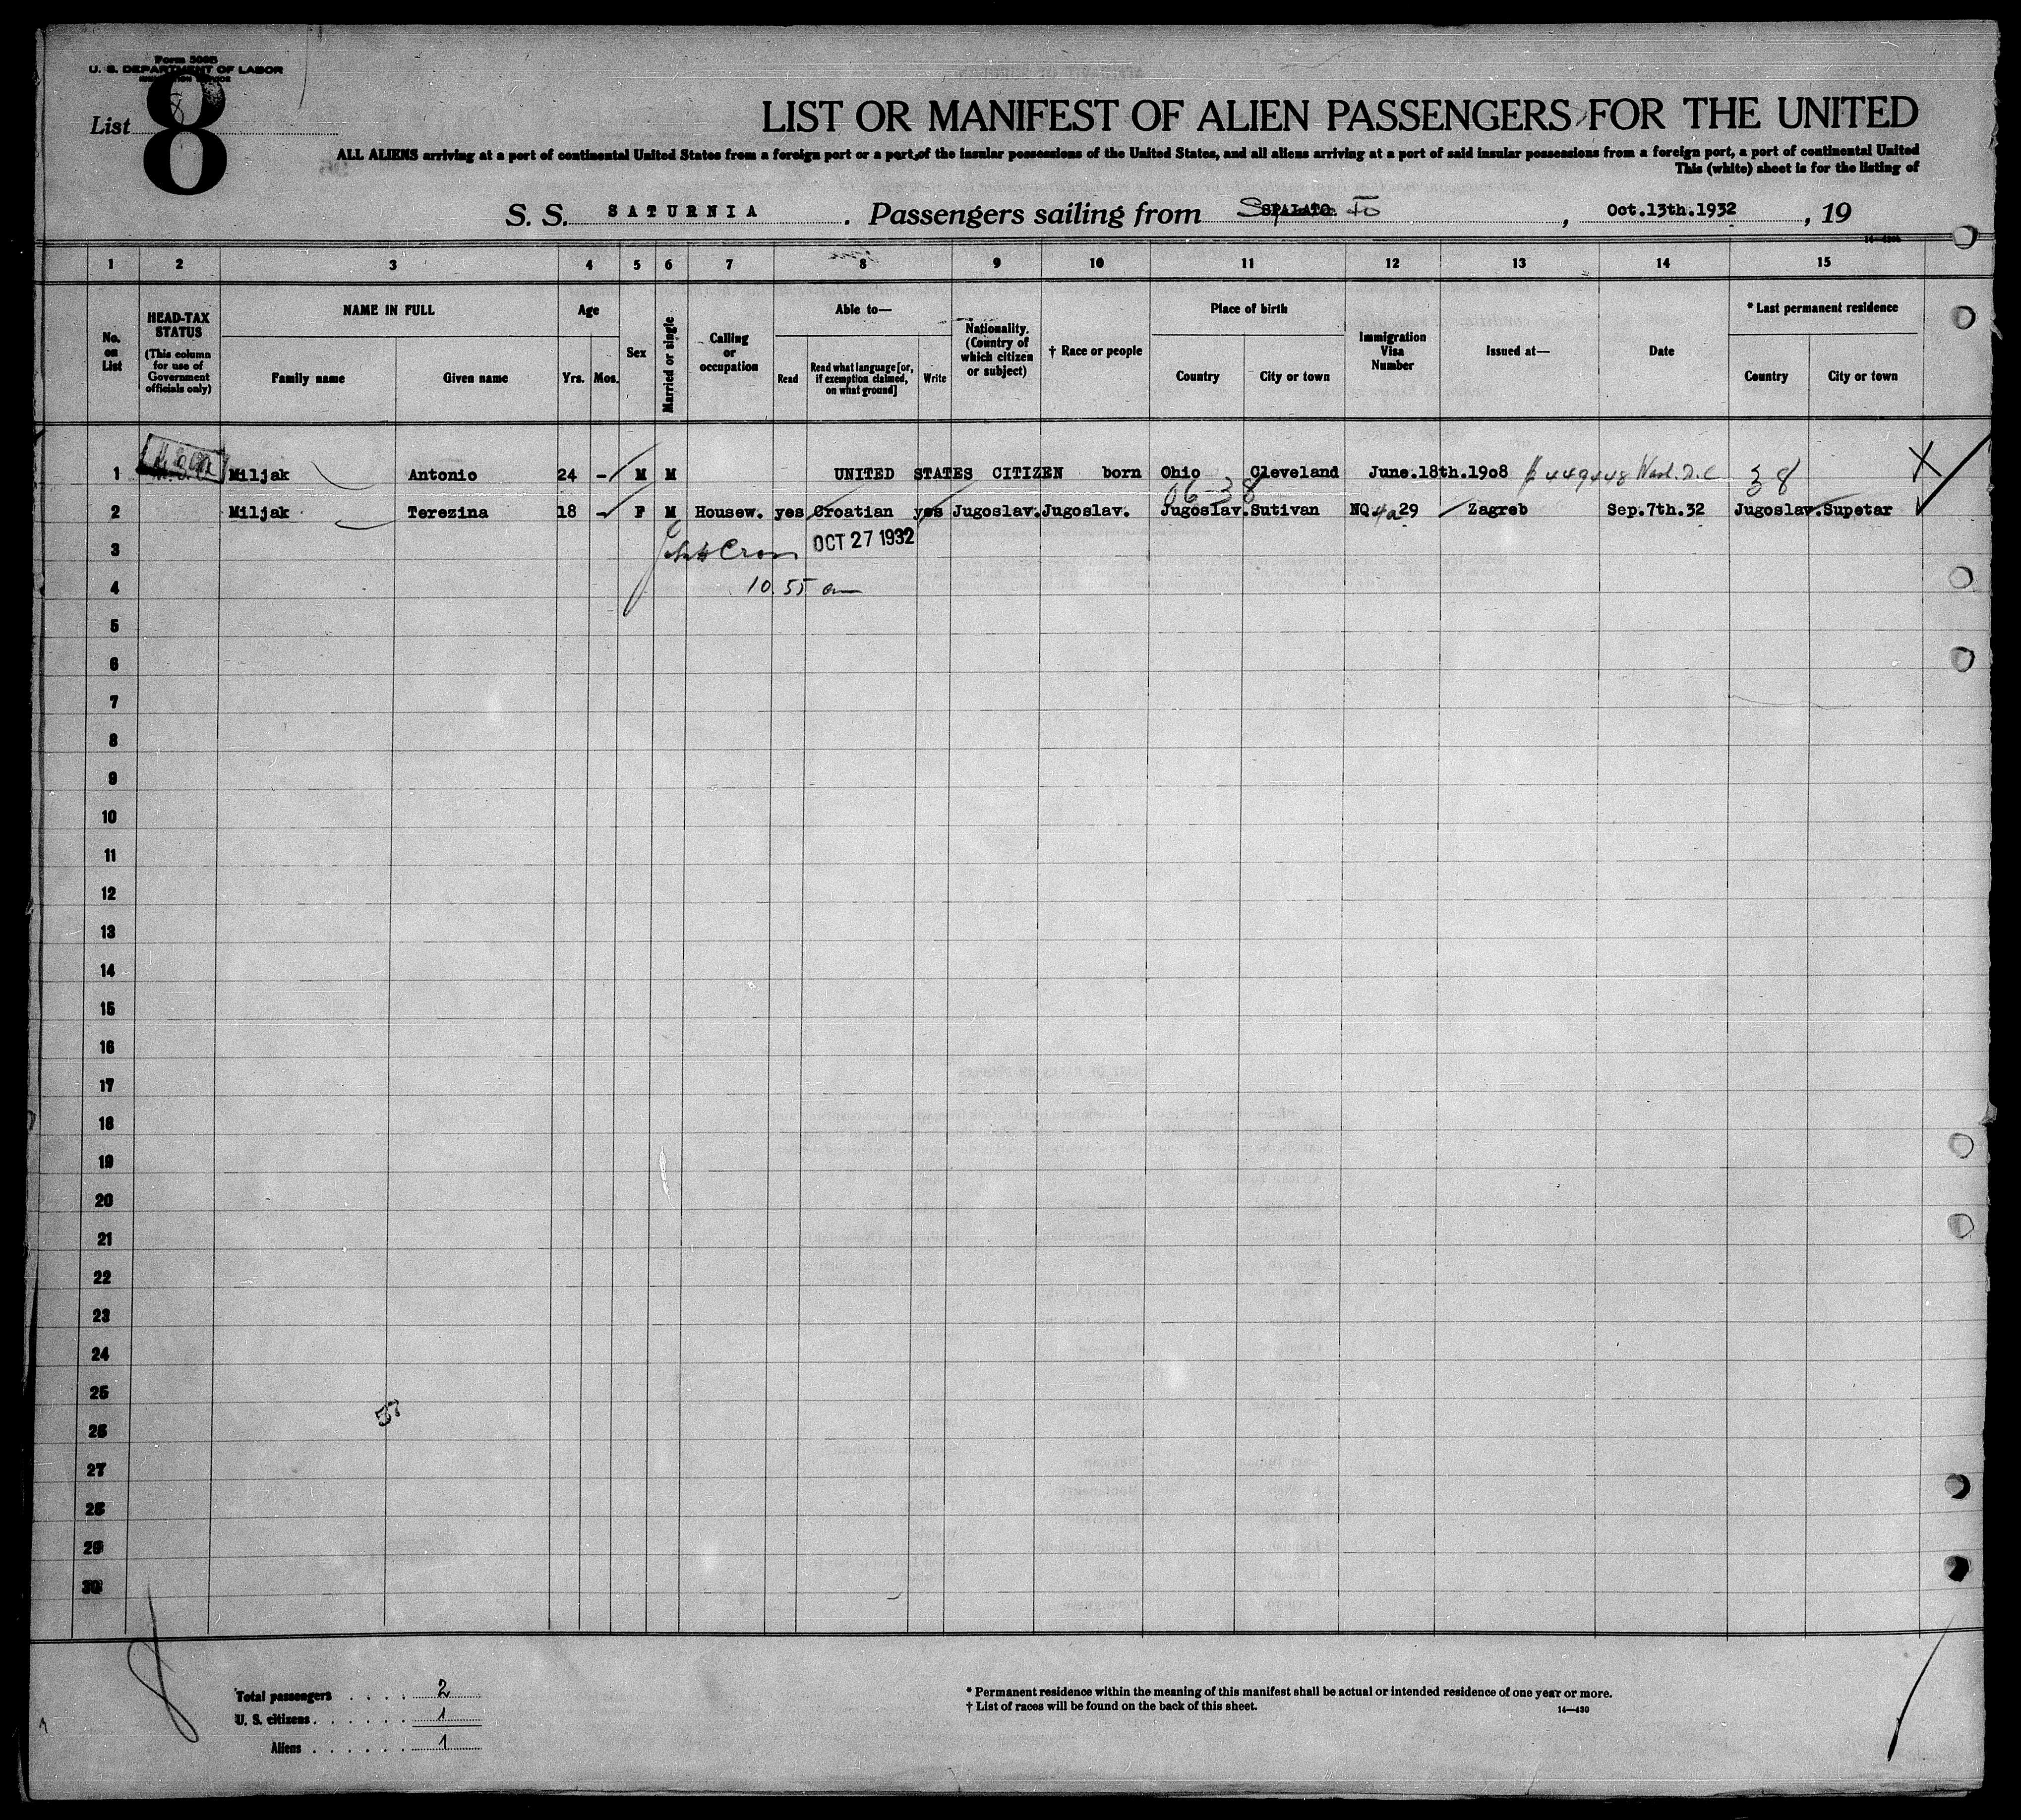 Form 500B
U. S. DEPARTMENT OF LABOR
IMMIGRATION SERVICE
List 8
8
LIST OR MANIFEST OF ALIEN PASSENGERS FOR THE UNITED
ALL ALIENS arriving at a port of continental United States from a foreign port or a port of the insular possessions of the United States, and all aliens arriving at a port of said insular possessions from a foreign port, a port of continental United
This (white) sheet is for the listing of
S. S. SATURNIA . Passengers sailing from SPALATO , Oct.13th.1932 , 19
1 2 3 4 5 6 7 8 9 10 11 12 13 14 15
No. on List
HEAD-TAX STATUS (This column for use of Government officials only)
NAME IN FULL
Family name Given name
Age
Yrs. Mos.
Sex
Married or single
Calling or occupation
Able to—
Read Read what language [or, if exemption claimed, on what ground] Write
Nationality. (Country of which citizen or subject)
† Race or people
Place of birth
Country City or town
Immigration Visa Number
Issued at—
Date
* Last permanent residence
Country City or town
1 Miljak Antonio 24 - M M UNITED STATES CITIZEN born Ohio Cleveland June.18th.1908 449448 Wash. D.C. 38
06-38
2 Miljak Terezina 18 - F M Housew. yes Croatian yes Jugoslav. Jugoslav. Jugoslav. Sutivan NQ 4a29 Zagreb Sep.7th.32 Jugoslav. Supetar
3 OCT 27 1932
4 10.55 am
5
6
7
8
9
10
11
12
13
14
15
16
17
18
19
20
21
22
23
24
25
26
27
28
29
30
Total passengers . . . . 2
U. S. citizens . . . . . . 1
Aliens . . . . . . 1
* Permanent residence within the meaning of this manifest shall be actual or intended residence of one year or more.
† List of races will be found on the back of this sheet.
14—430